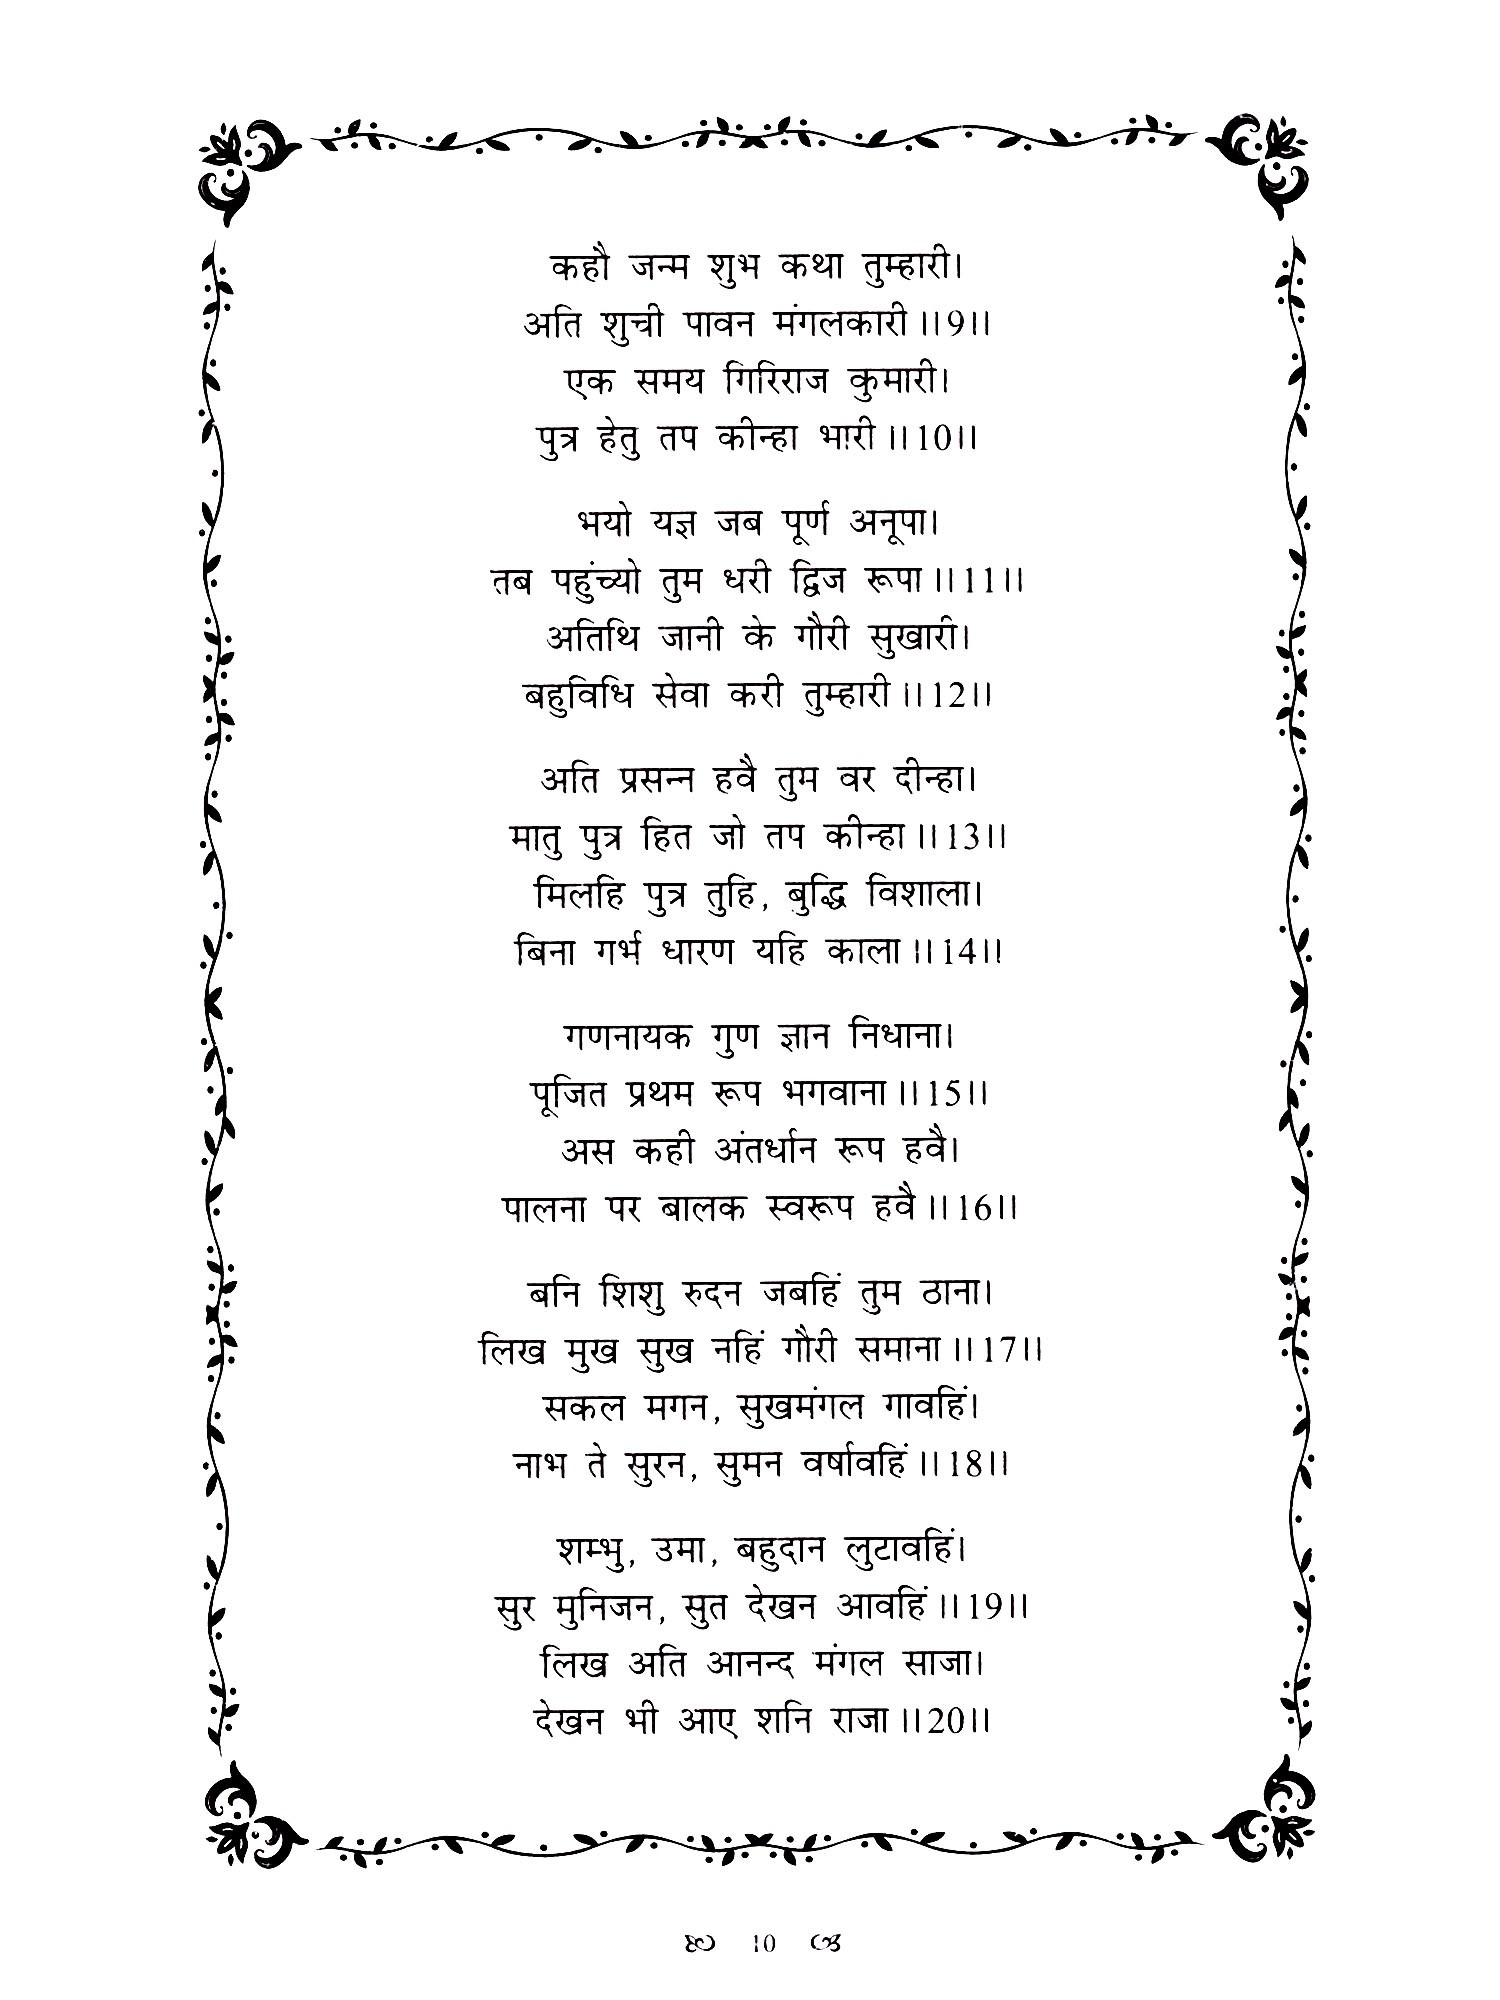 कहौ जन्म शुभ कथा तुम्हारी।
अति शुची पावन मंगलकारी॥9॥
एक समय गिरिराज कुमारी।
पुत्र हेतु तप कीन्हा भारी॥10॥
भयो यज्ञ जब पूर्ण अनूपा।
तब पहुंच्यो तुम धरी द्विज रूपा॥11॥
अतिथि जानी के गौरी सुखारी।
बहुविधि सेवा करी तुम्हारी॥12॥
अति प्रसन्न हवै तुम वर दीन्हा।
मातु पुत्र हित जो तप कीन्हा॥13॥
मिलहि पुत्र तुहि, बुद्धि विशाला।
बिना गर्भ धारण यहि काला॥14॥
गणनायक गुण ज्ञान निधाना।
पूजित प्रथम रूप भगवाना॥15॥
अस कही अंतर्धान रूप हवै।
पालना पर बालक स्वरूप हवै॥16॥
बनि शिशु रुदन जबहिं तुम ठाना।
लिख मुख सुख नहिं गौरी समाना॥17॥
सकल मगन, सुखमंगल गावहिं।
नाभ ते सुरन, सुमन वर्षावहिं॥18॥
शम्भु, उमा, बहुदान लुटावहिं।
सुर मुनिजन, सुत देखन आवहिं॥19॥
लिख अति आनन्द मंगल साजा।
देखन भी आए शनि राजा॥20॥
10